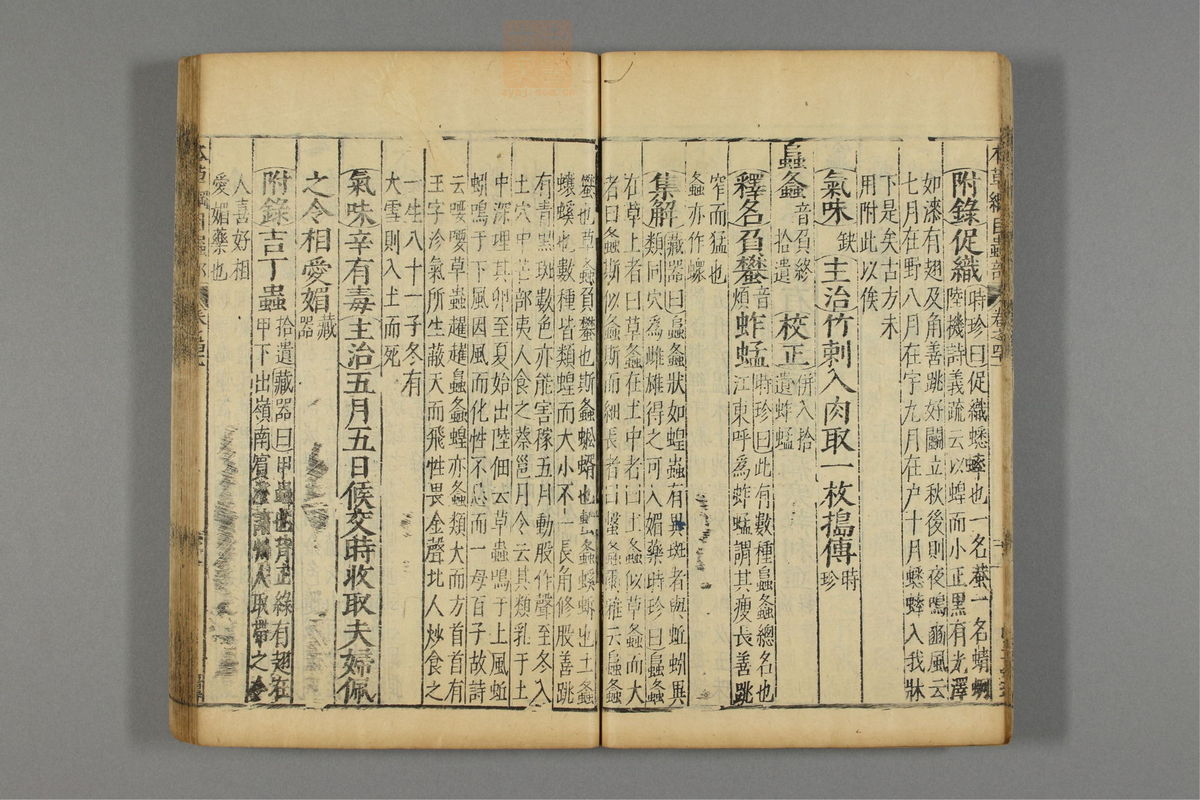 本草綱目蟲部 卷之四十一
附錄促織時珍曰促織蟋蟀也一名蛬一名蜻蛚
陸機詩義疏云以蝗而小正黑有光澤
如漆有翅及角善跳好鬭立秋後則夜鳴豳風云
七月在野八月在宇九月在户十月蟋蟀入我牀
下是矣古方未
用附此以俟
氣味缺主治竹刺入肉取一枚搗傅時珍
𧒂螽音負終拾遺校正併入拾遺蚱蜢
釋名負蠜音煩蚱蜢時珍曰此有數種𧒂螽總名也
江東呼爲蚱蜢謂其瘦長善跳
窄而猛也
螽亦作
集解藏器曰𧒂螽狀如蝗蟲有異斑者與蚯蚓異
類同穴爲雌雄得之可入媚藥時珍曰𧒂螽
在草上者曰草螽在土中者曰土螽似草螽而大
者曰螽斯似螽斯而細長者曰蟿螽爾雅云𧒂螽
蠜也草螽負蠜也斯螽蜙蝑也蟿螽螇蚸也土螽
蠰螇也數種皆類蝗而大小不一長角修股善跳
有青黑斑數色亦能害稼五月動股作聲至冬入
土穴中芒部夷人食之蔡邕月令云其類乳于土
中深埋其卵至夏始出陸佃云草蟲鳴于上風蚯
蚓鳴于下風因風而化性不忌而一母百子故詩
云喓喓草蟲趯趯𧒂螽蝗亦螽類大而方首首有
王字沴氣所生蔽天而飛性畏金聲北人炒食之
一生八十一子冬有
大雪則入土而死
氣味辛有毒主治五月五日候交時收取夫婦佩
之令相愛媚藏器
附錄吉丁蟲拾遺藏器曰甲蟲也背正綠有翅在
甲下出嶺南賓澄諸州人取帶之令
人喜好相
愛媚藥也